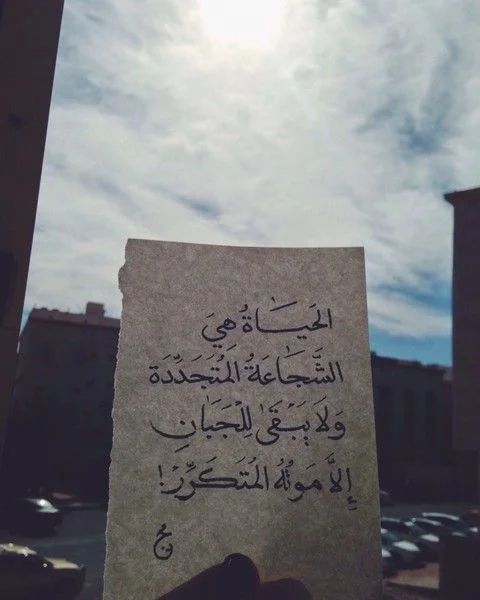 الحَيَاةُ هِيَ
الشَّجَاعَةُ المُتَجَدِّدَة
وَلَا يَبْقَى لِلْجَبَانِ
إِلاَّ مَوتُهُ المُتَكَرِّرْ!